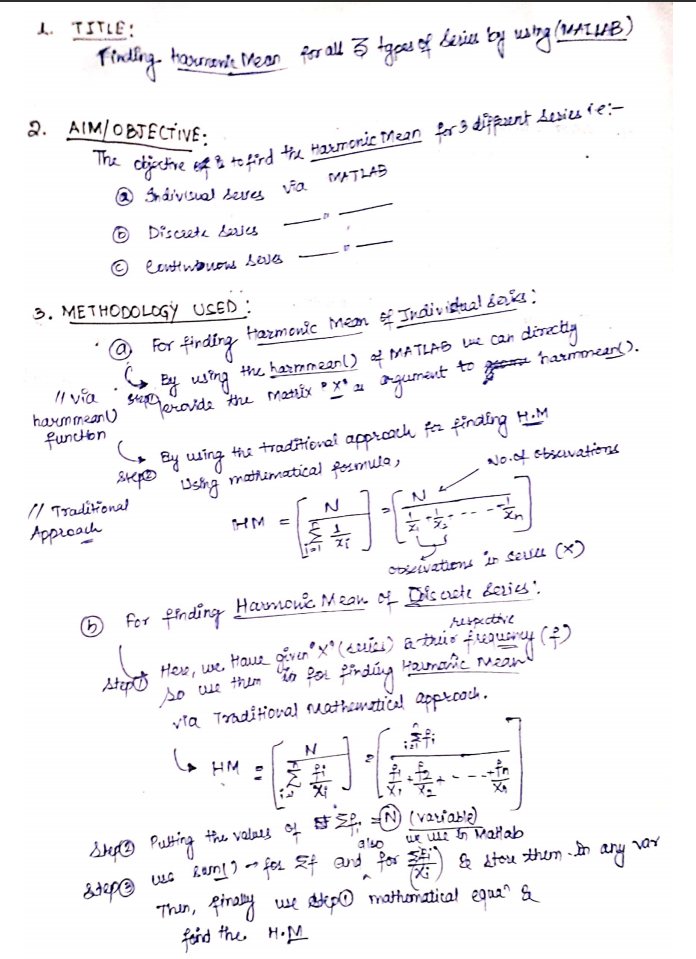 1. TITLE:
Finding Harmonic Mean for all 3 types of Series by using (MATLAB)
2. AIM/OBJECTIVE:
The objective is to find the Harmonic Mean for 3 different Series i.e:-
(a) Individual Series via MATLAB
(b) Discrete Series —— " ——
(c) Continuous Series —— " ——
3. METHODOLOGY USED:
(a) For finding Harmonic Mean of Individual Series:
// via harmmean() function
Step① By using the harmmean() of MATLAB we can directly
provide the Matrix "X" as argument to harmmean().
Step② By using the traditional approach for finding H.M
Using mathematical formula,
// Traditional Approach
No. of observations
HM = [N / Σ_{i=1}^{n} 1/xi] = [N / (1/x1 + 1/x2 + - - - - + 1/xn)]
observations in series (X)
(b) For finding Harmonic Mean of Discrete Series:
Step① Here, we have given "X" (series) & their respective frequency (f)
so use them for finding Harmonic Mean
via Traditional Mathematical approach.
HM = [N / Σ_{i=1}^{n} fi/xi] = [Σ_{i=1}^{n} fi / (f1/x1 + f2/x2 + - - - + fn/xn)]
Step② Putting the values of Σfi = (N) (variable)
we use in Matlab
Step③ use sum() → for Σf and also for Σ(fi/xi) & store them in any var
Then, finally use step① mathematical equan &
find the H.M